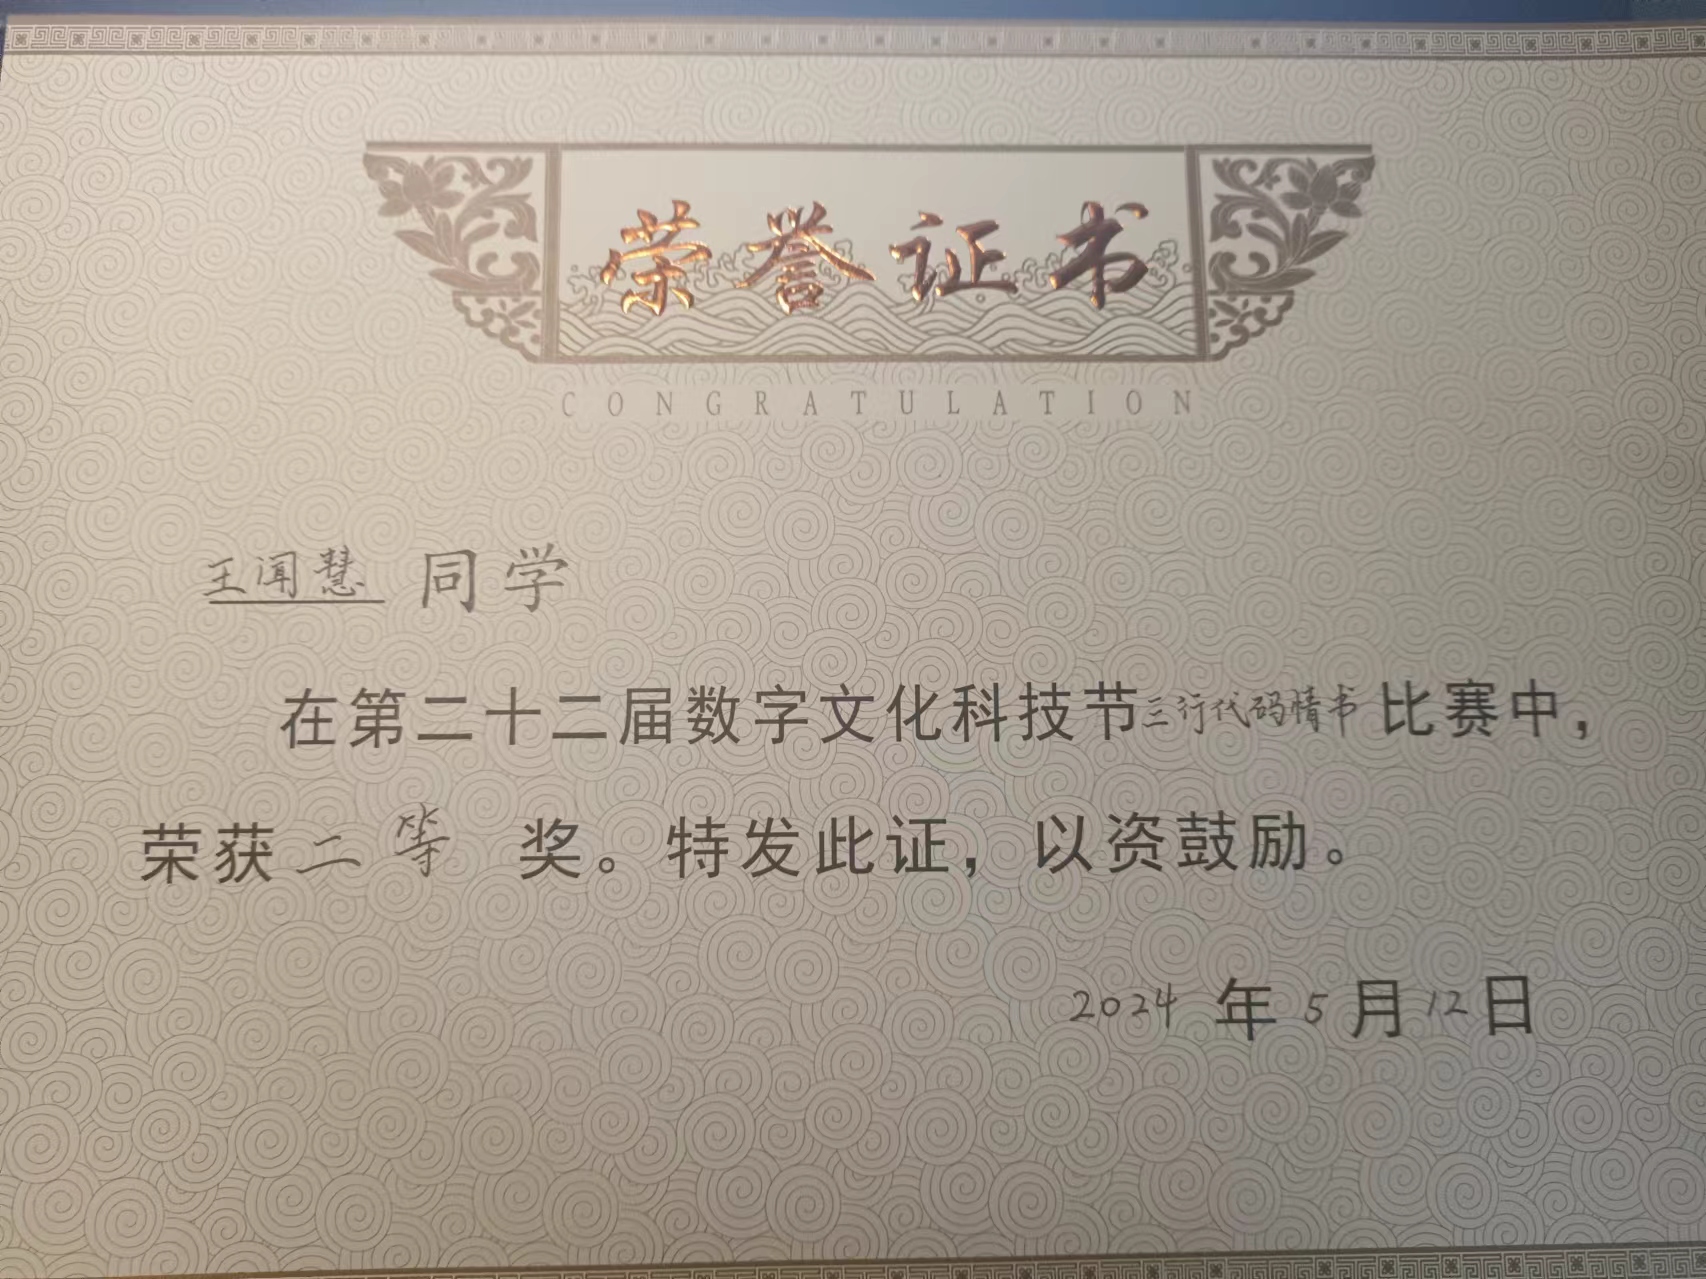 荣誉证书
CONGRATULATION
王闻慧 同学
在第二十二届数字文化科技节三行代码情书比赛中，
荣获二等 奖。特发此证，以资鼓励。
2024 年 5 月 12 日